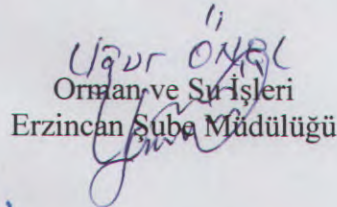 Uğur ÖNAL
Orman ve Su İşleri
Erzincan Şube Müdülüğü